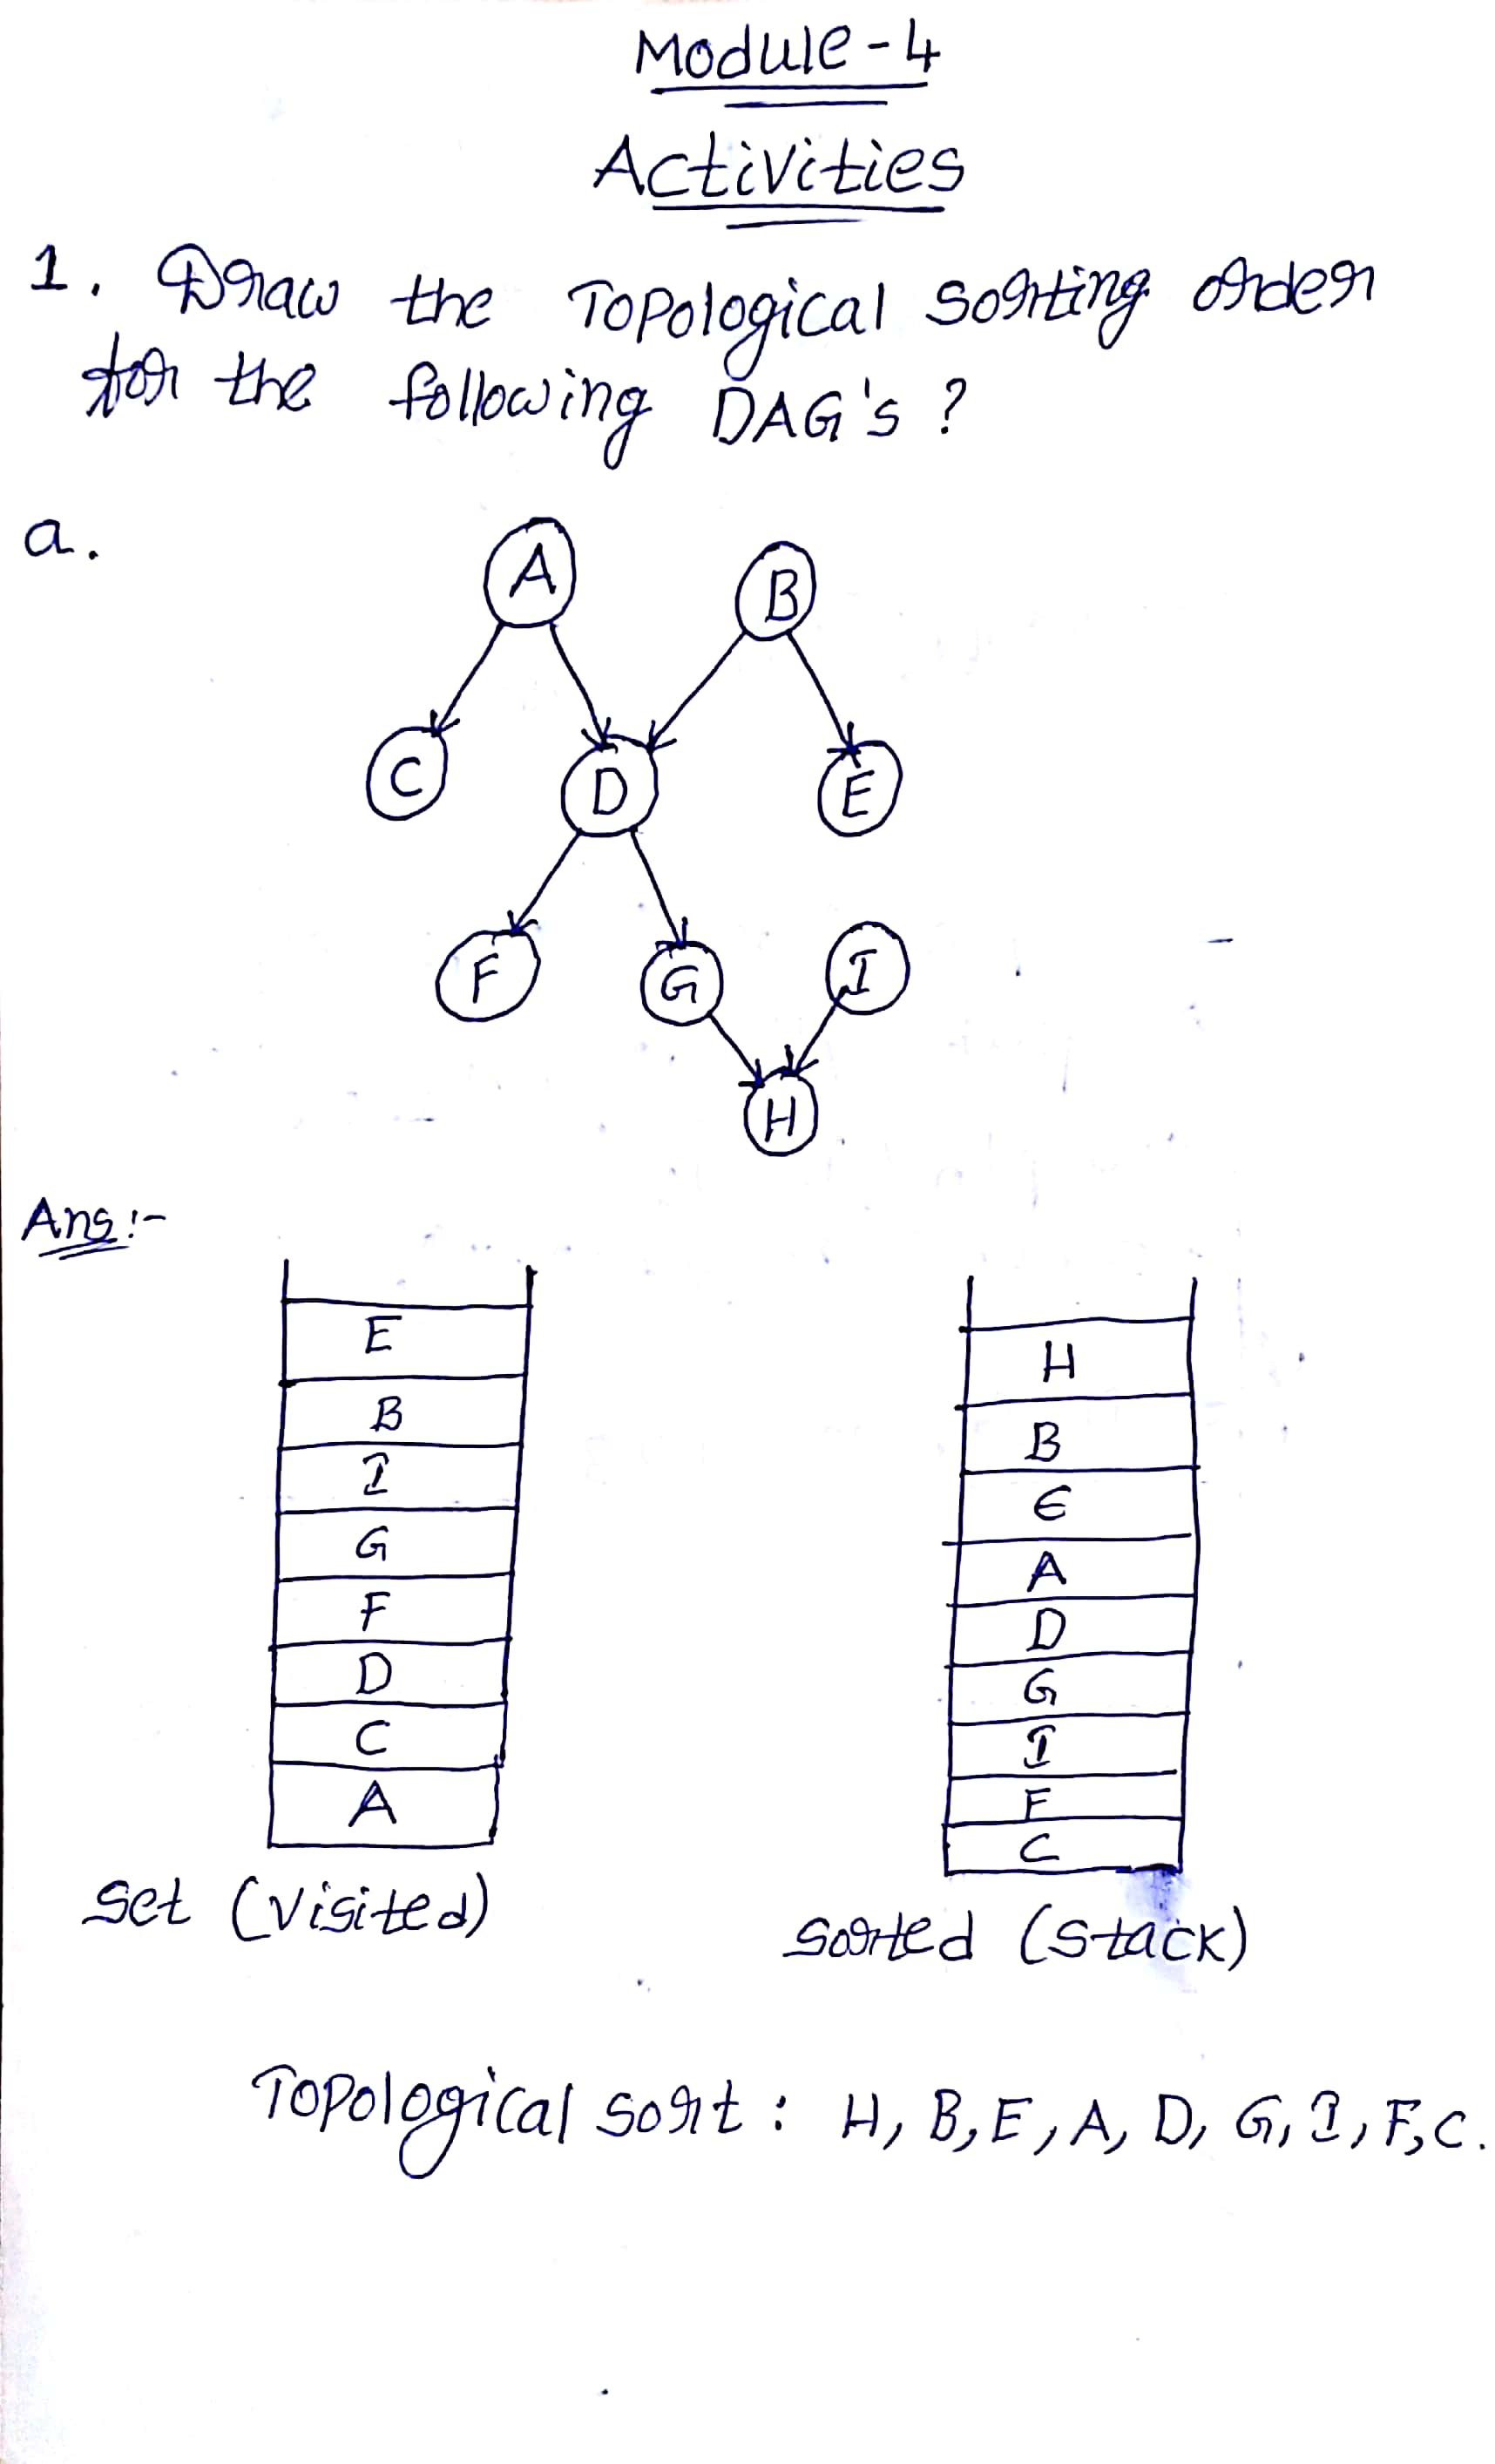 Module-4
Activities
1. Draw the Topological sorting order
for the following DAG's ?
a.
A
B
C
D
E
F
G
I
H
Ans:-
E
B
I
G
F
D
C
A
Set (visited)
H
B
E
A
D
G
I
F
C
Sorted (stack)
Topological sort : H, B, E, A, D, G, I, F, C.